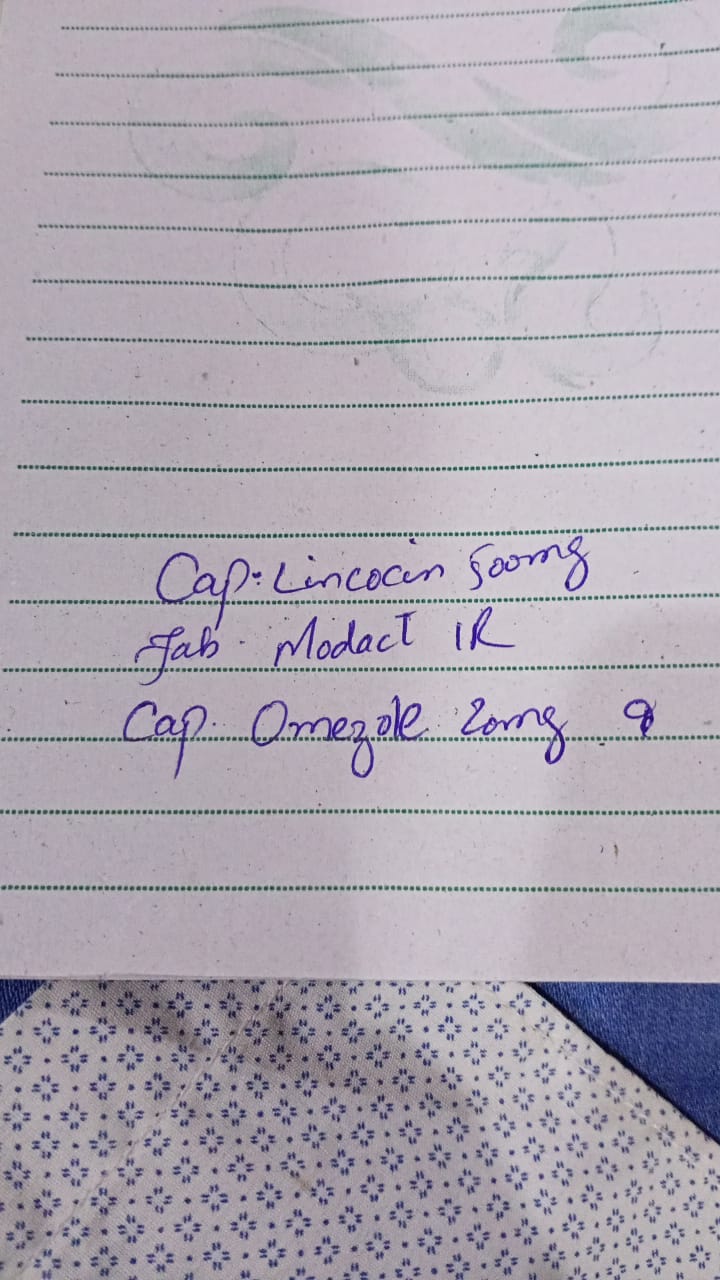 Cap. Lincocin 500mg
Tab. Modact IR
Cap. Omezole 20mg